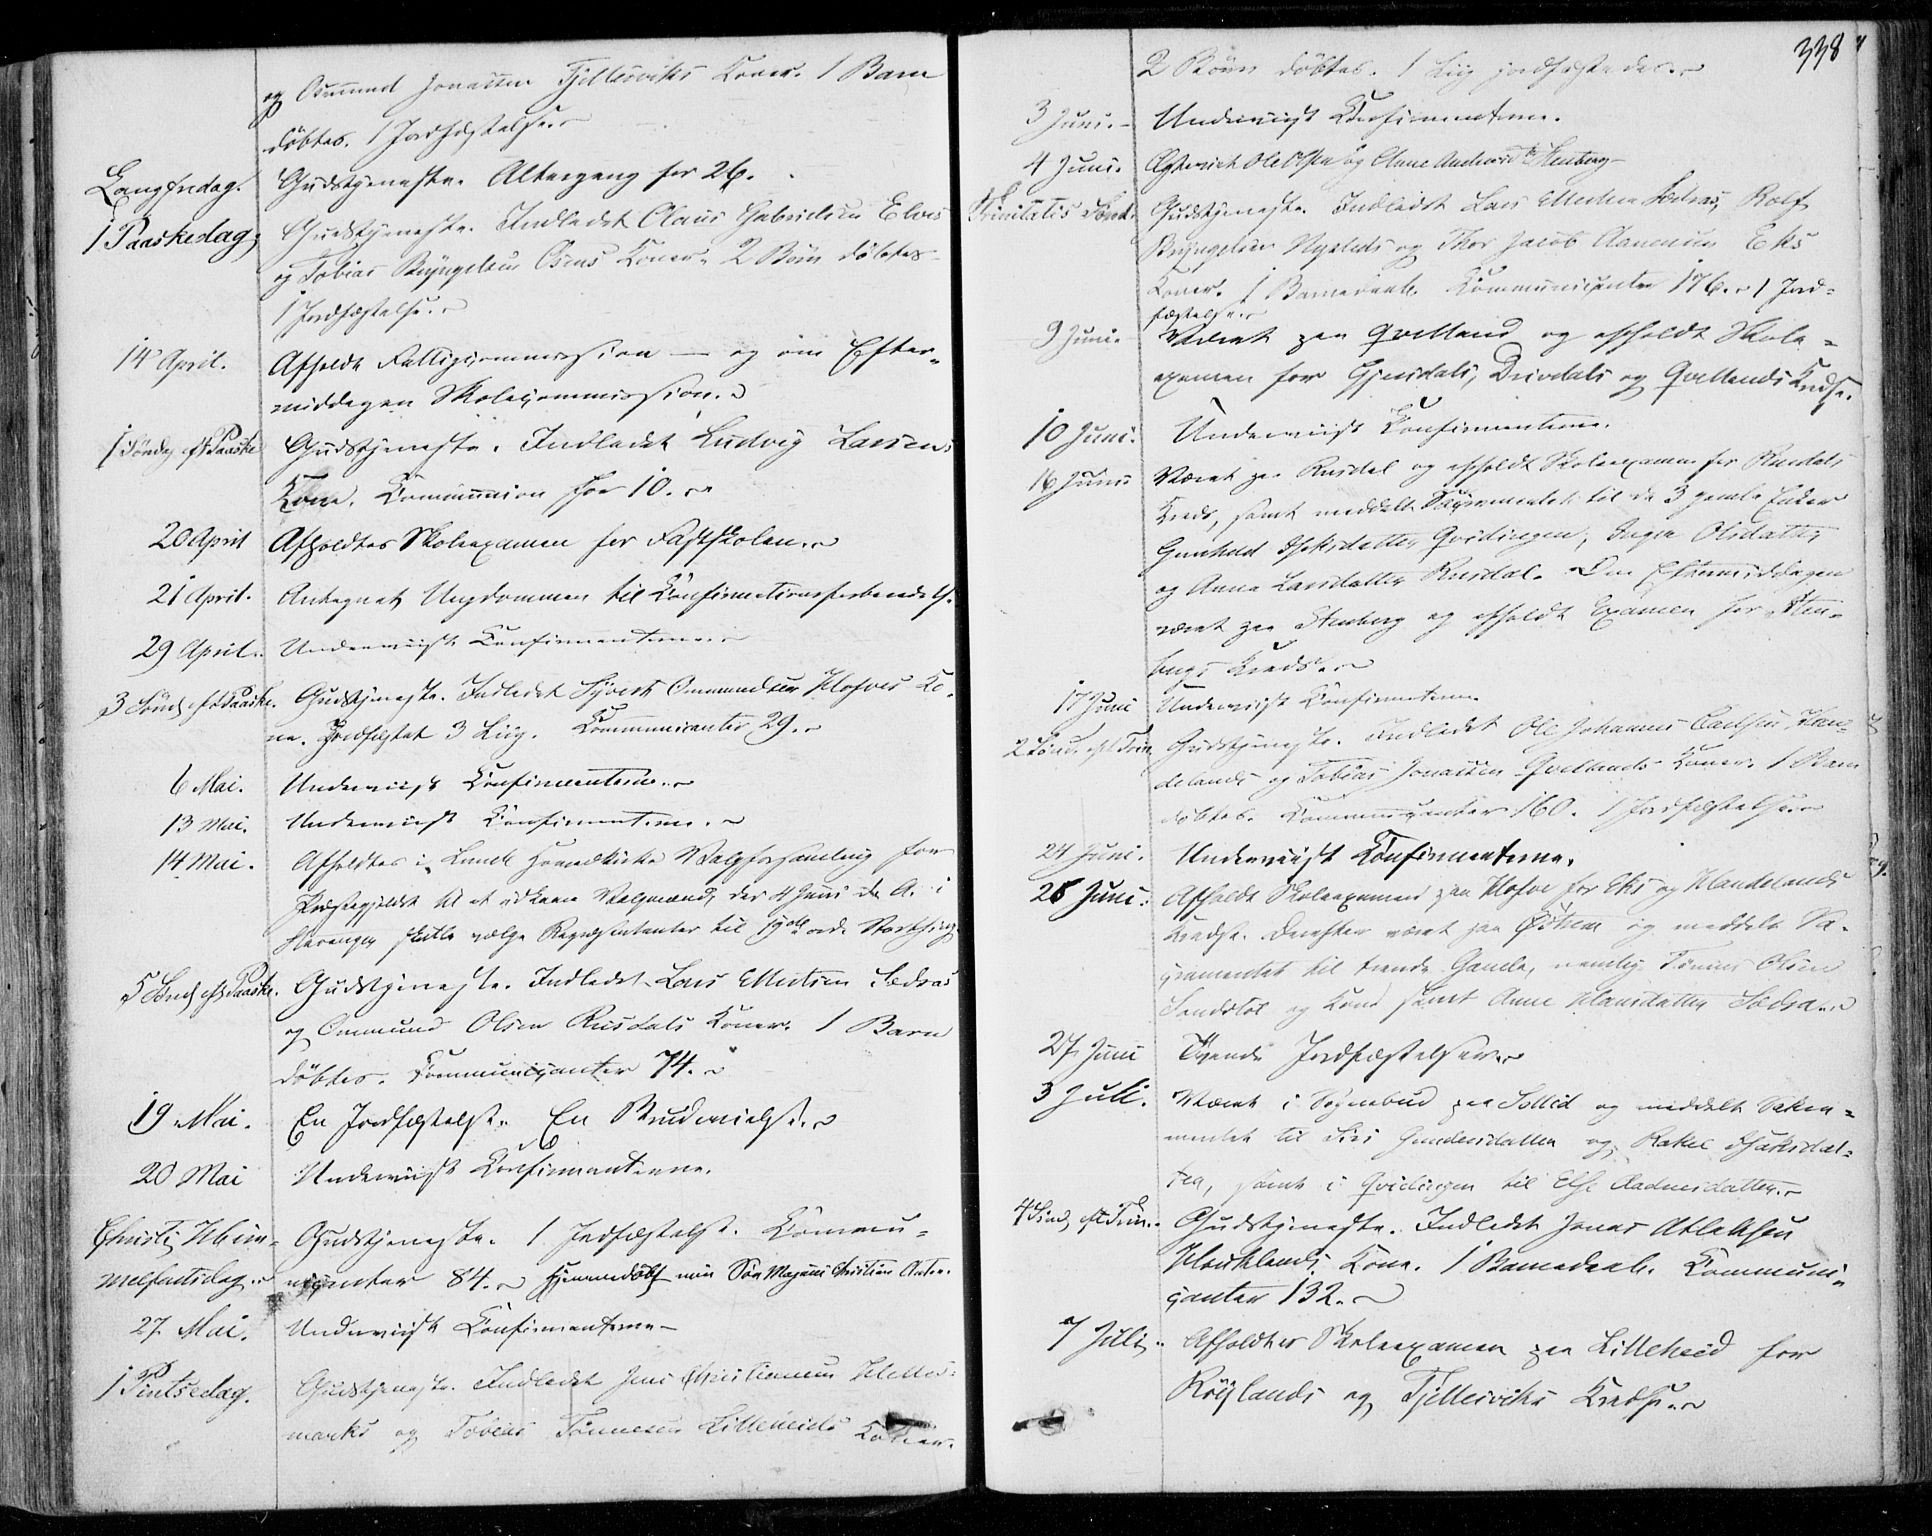 og Osmund Jonassen Fjellesviks Koner. 1 Barn
döbtes. 1 Jordfæstelse.
Langfredag. Gudstjeneste. Altergang for 26.
1 Paaskedag. Gudstjeneste. Indledet Claus Gabrielsen Elves
og Tobias Bryngelsen Osens Koner. 2 Börn döbtes
1 Jordfæstelse.
14 April. Afholdt Fattigcommission — og om Efter-
middagen Skolecommission.
1 Söndag eft Paaske Gudstjeneste. Indledet Ludvig Larsens
Kone. Communion for 10.
20 April Afholdtes Skoleexamen for Fastskolen.
21 April. Antegnet Ungdommen til Confirmationsforberedelse.
29 April. Underviist Confirmanterne.
3 Sönd eft Paaske. Gudstjeneste. Indledet Syvert Ommundsen Hofves Ko-
ne. Jordfæstet 3 Liig. Communicanter 29.
6 Mai. Underviist Confirmanterne.
13 Mai. Underviist Confirmanterne.
14 Mai. Afholdtes i Lunde Hovedkirke Valgforsamling for
Præstegjeldet til at udkaare Valgmænd, der 4 Juni d. A. i
Stavanger skulle vælge Repræsentanter til 19de ord. Storthing
5 Sönd eft Paaske. Gudstjeneste. Indledet Lars Mertsen Sædras
og Ommund Olsen Rusdals Koner. 1 Barn
döbtes. Communicanter 74.
19 Mai. En Jordfæstelse. En Brudevielse.
20 Mai Underviist Confirmanterne.
Christi Him- Gudstjeneste. 1 Jordfæstelse. Commu-
melfartsdag. nicanter 84. Hjemmedöbt min Sön Magnus Christian Anton.
27 Mai. Underviist Confirmanterne
1 Pintsedag. Gudstjeneste. Indledet Jens Christiansen
marks og Tobias Tönnesen Lilleheids Koner.
338
2 Börn döbtes. 1 Liig jordfæstedes.
3 Juni. Underviist Confirmanterne.
4 Juni. Ægteviet Ole Olsen og Anne Andersd. Stenberg
Trinitatis Sönd. Gudstjeneste. Indledet Lars Mertsen Sædras, Rolf
Bryngelsen Nyelids og Thor Jacob Aanensen Eks
Koner. 1 Barnedaab. Communicanter 176. 1 Jord-
fæstelse.
9 Juni. Været paa Qvelland og afholdt Skole-
examen for Gyusdals, Drivdals og Qvellands Kredse.
10 Juni. Underviist Confirmanterne.
16 Juni Været paa Rusdal og afholdt Skoleexamen for Rusdals
Kreds, samt meddelt Sacramentet til de 3 gamle Enker
Gunhild Isaksdatter Qvidingen, Inger Olsdatter
og Anna Larsdatter Rusdal. Om Eftermiddagen
været paa Stenberg og afholdt Examen for Sten-
bergs Kreds.
17 Juni Underviist Confirmanterne
2 Sönd. eft Trin. Gudstjeneste. Indledet Ole Johannes Carlsen Han-
delands og Tobias Jonassen Qvellands Koner. 1 Barn
döbtes. Communicanter 160. 1 Jordfæstelse.
24 Juni. Underviist Confirmanterne.
26 Juni. Afholdt Skoleexamen paa Hofve for Eks og Handelands
Kredse. Derefter været paa Östrem og meddelt Sa-
cramentet til trende Gamle, nemlig Tönnes Olsen
Sandstöl og Kone samt Anne Hansdatter Sædra.
27 Juni Tvende Jordfæstelser.
3 Juli. Været i Sognebud paa Sollid og meddelt Sakra-
mentet til Siri Gundersdatter og Rakel Isaksdat-
ter, samt i Qvidingen til Else Aadnesdatter.
4 Sönd. eft Trin. Gudstjeneste. Indledet Jonas Atlaksen
Houklands Kone. 1 Barnedaab. Communi-
canter 132.
7 Juli. Afholdtes Skoleexamen paa Lilleheid for
Röyslands og Fjellesviks Kredse.